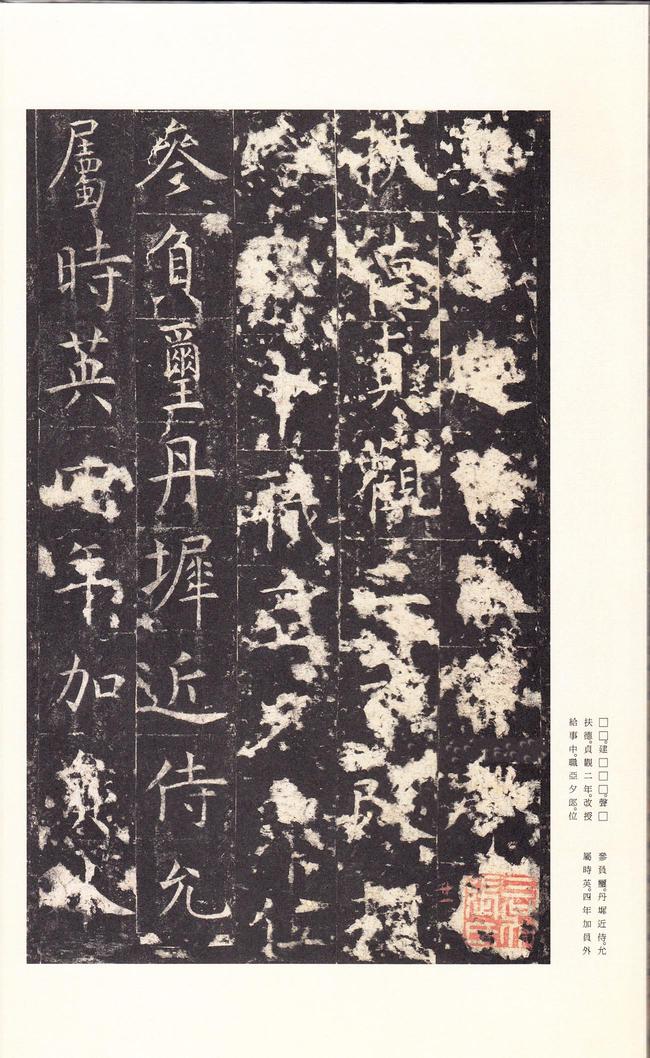 扶德貞觀二年改授
給事中職亞夕郎位
參負璽丹墀近侍允
屬時英四年加員外
□□。建□□□。聲□
扶德。貞觀二年。改授
給事中。職亞夕郎。位
參負璽。丹墀近侍。允
屬時英。四年加員外